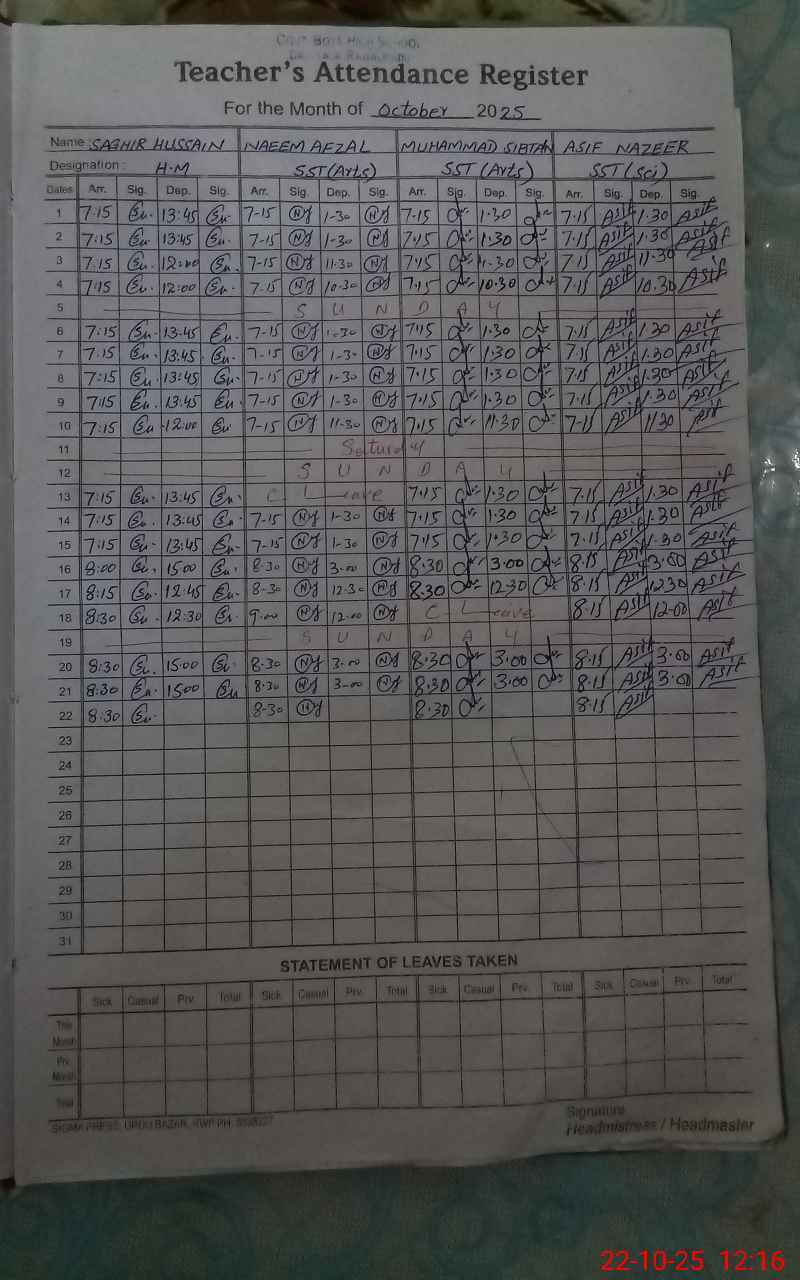 GOVT BOYS HIGH SCHOOL
Teacher's Attendance Register
For the Month of October 2025
Name : SAGHIR HUSSAIN NAEEM AFZAL MUHAMMAD SIBTAN ASIF NAZEER
Designation : H.M SST(Arts) SST (Arts) SST(Sci)
Dates Arr. Sig. Dep. Sig. Arr. Sig. Dep. Sig. Arr. Sig. Dep. Sig. Arr. Sig. Dep. Sig.
1 7:15 13:45 7-15 1-30 7.15 1.30 7.15 Asif 1.30 Asif
2 7:15 13:45 7-15 1-30 7.15 1.30 7.15 Asif 1.30 Asif
3 7:15 12:00 7-15 11.30 7.15 11.30 7.15 Asif 11.30 Asif
4 7:15 12:00 7-15 10.30 7.15 10.30 7.15 Asif 10.30 Asif
5 S U N D A Y
6 7:15 13:45 7-15 1.30 7.15 1.30 7.15 Asif 1.30 Asif
7 7:15 13:45 7-15 1-30 7.15 1.30 7.15 Asif 1.30 Asif
8 7:15 13:45 7-15 1-30 7.15 1.30 7.15 Asif 1.30 Asif
9 7:15 13:45 7-15 1-30 7.15 1.30 7.15 Asif 1.30 Asif
10 7:15 12:00 7-15 11-30 7.15 11.30 7-15 Asif 11.30 Asif
11 Saturday
12 S U N D A Y
13 7:15 13:45 C Leave 7.15 1.30 7.15 Asif 1.30 Asif
14 7:15 13:45 7-15 1-30 7.15 1.30 7.15 Asif 1.30 Asif
15 7:15 13:45 7-15 1-30 7.15 1.30 7.15 Asif 1.30 Asif
16 8:00 15:00 8-30 3.00 8.30 3.00 8.15 Asif 3.00 Asif
17 8:15 12:45 8-30 12.30 8.30 12.30 8.15 Asif 12.30 Asif
18 8:30 12:30 9.00 12.00 C Leave 8.15 Asif 12.00 Asif
19 S U N D A Y
20 8:30 15:00 8.30 3.00 8.30 3.00 8.15 Asif 3.00 Asif
21 8:30 1500 8.30 3-00 8.30 3.00 8.15 Asif 3.00 Asif
22 8:30 8-30 8.30 8.15 Asif
23
24
25
26
27
28
29
30
31
STATEMENT OF LEAVES TAKEN
Sick Casual Prv. Total Sick Casual Prv. Total Sick Casual Prv. Total Sick Casual Prv. Total
This Month
Prv. Month
Total
SIGMA PRESS, URDU BAZAR, RWP PH:
Signature
Headmistress / Headmaster
22-10-25 12:16